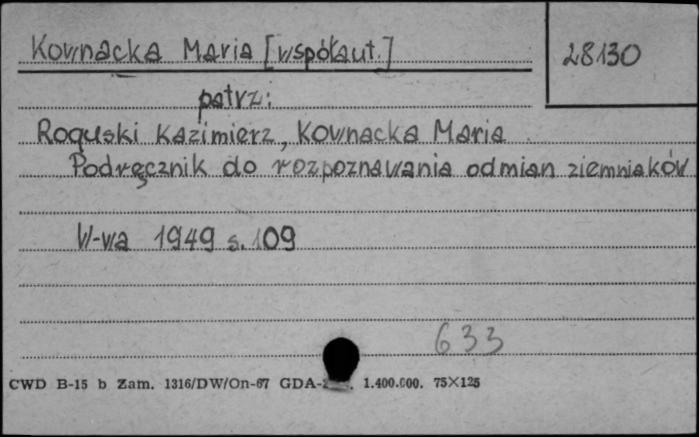 Kownacka Maria [współaut.]
28130
patrz:
Roguski Kazimierz, Kownacka Maria
Podręcznik do rozpoznawania odmian ziemniaków
W-wa 1949 s. 109
633
CWD B-15 b Zam. 1316/DW/On-67 GDA- 1.400.000. 75×125